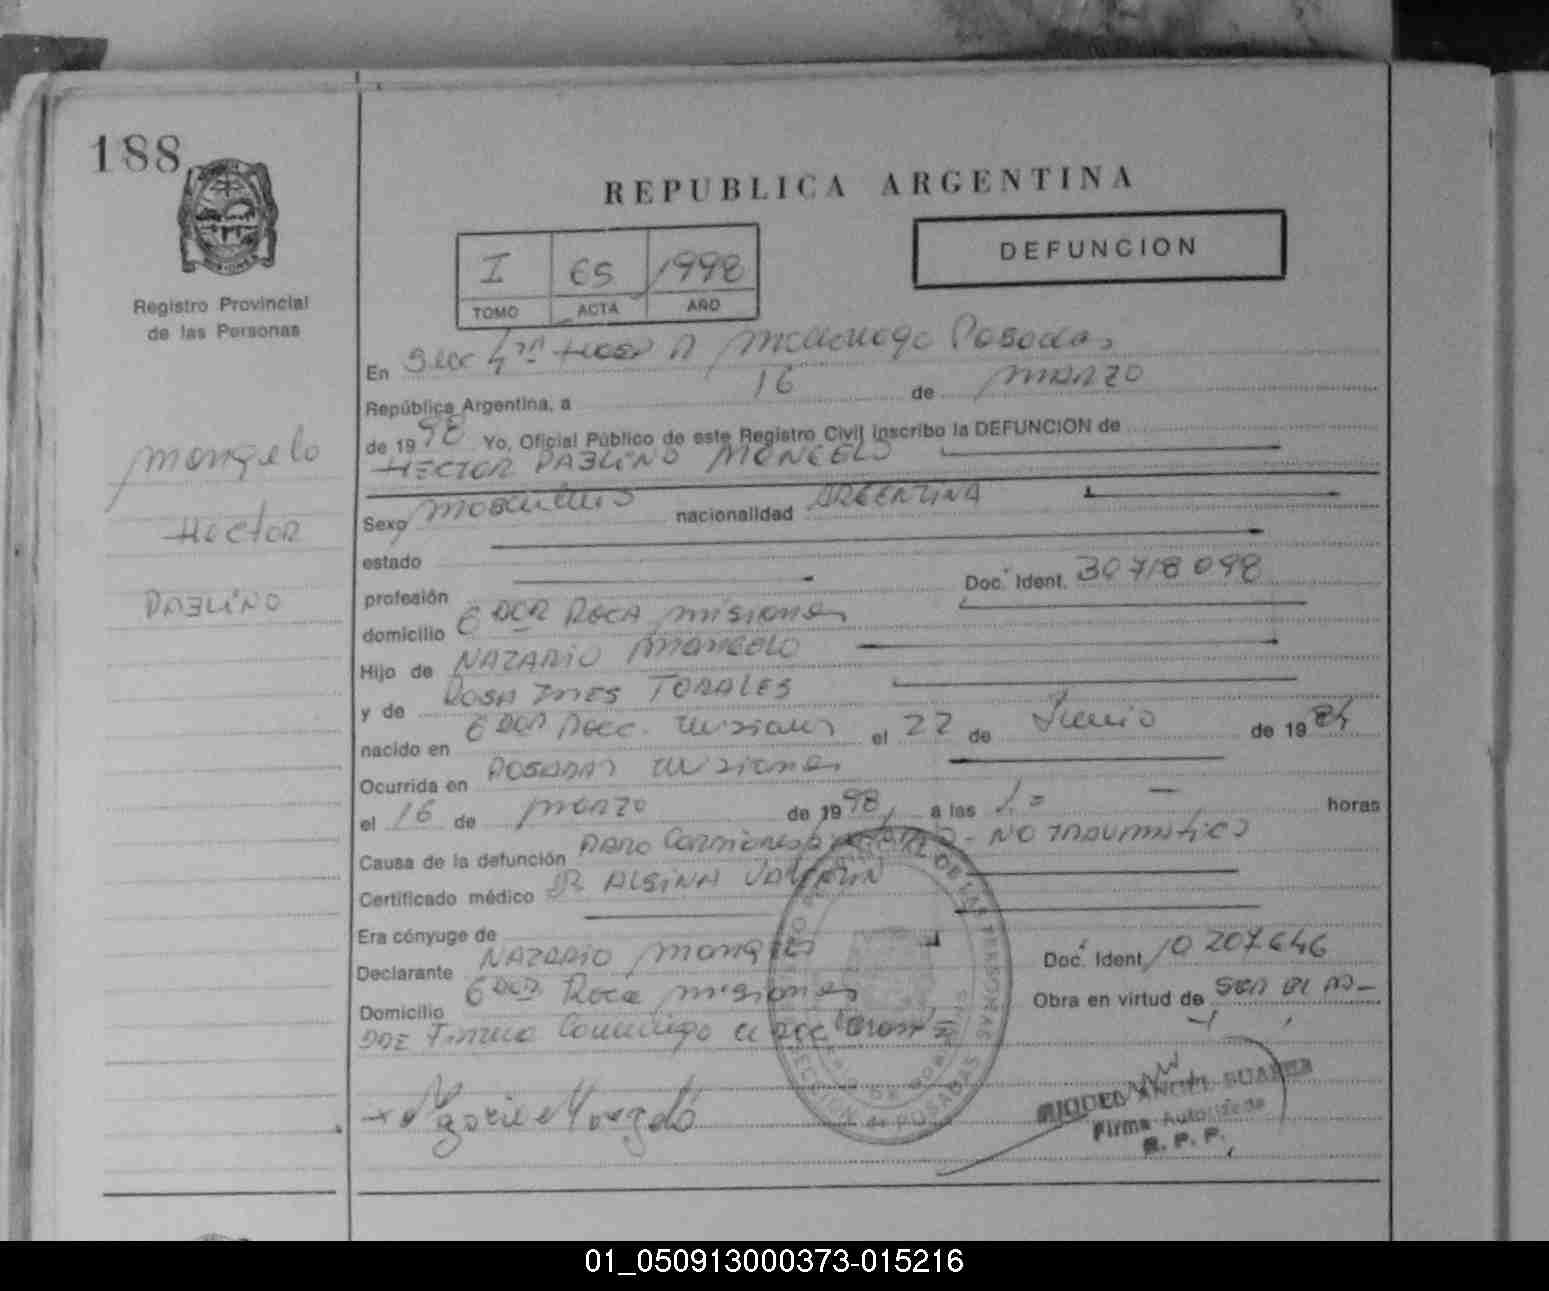 188
REPUBLICA ARGENTINA
DEFUNCION
I 65 1998
TOMO ACTA AÑO
Registro Provincial
de las Personas
En Secc 4ta Hosp R Madariaga Posadas
República Argentina, a 16 de marzo
de 1998 Yo, Oficial Público de este Registro Civil inscribo la DEFUNCION de
HECTOR PABLINO MONGELO
Mongelo
Hector
PABLINO
Sexo masculino nacionalidad ARGENTINA
estado
profesión Doc. Ident. 30718098
domicilio GDOR ROCA misiones
Hijo de NAZARIO MONGELO
y de ROSA INES TORALES
nacido en GDOR Roca misiones el 22 de Junio de 1984
Ocurrida en POSADAS misiones
el 16 de marzo de 1998 a las 1.= horas
Causa de la defunción PARO Cardiorespiratorio - NO TRAUMATICO
Certificado médico DR ALSINA
Era cónyuge de
Declarante NAZARIO Mongelo Doc. Ident 10207646
Domicilio GDOR Roca misiones Obra en virtud de SER EL PA-
DRE Firma conmigo el acta
Mongelo
REGISTRO PROVINCIAL DE LAS PERSONAS
SECCION POSADAS
MIGUEL ANGEL SUAREZ
Firma Autorizada
R. P. P.
01_050913000373-015216